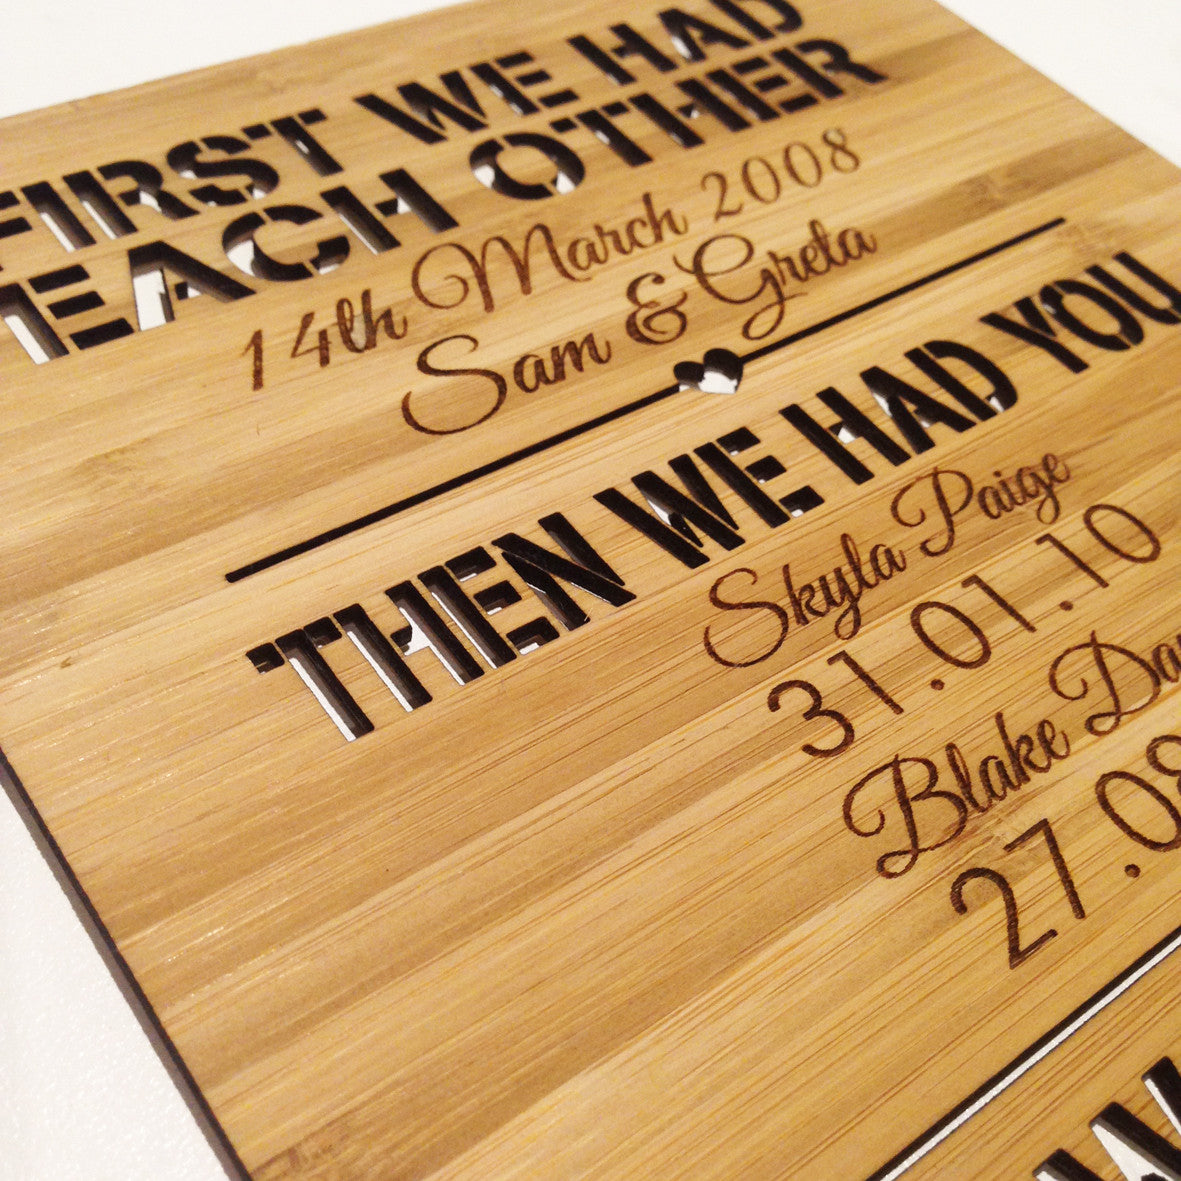 FIRST WE HAD
EACH OTHER
14th March 2008
Sam & Greta
THEN WE HAD YOU
Skyla Paige
31.01.10
Blake
27.08